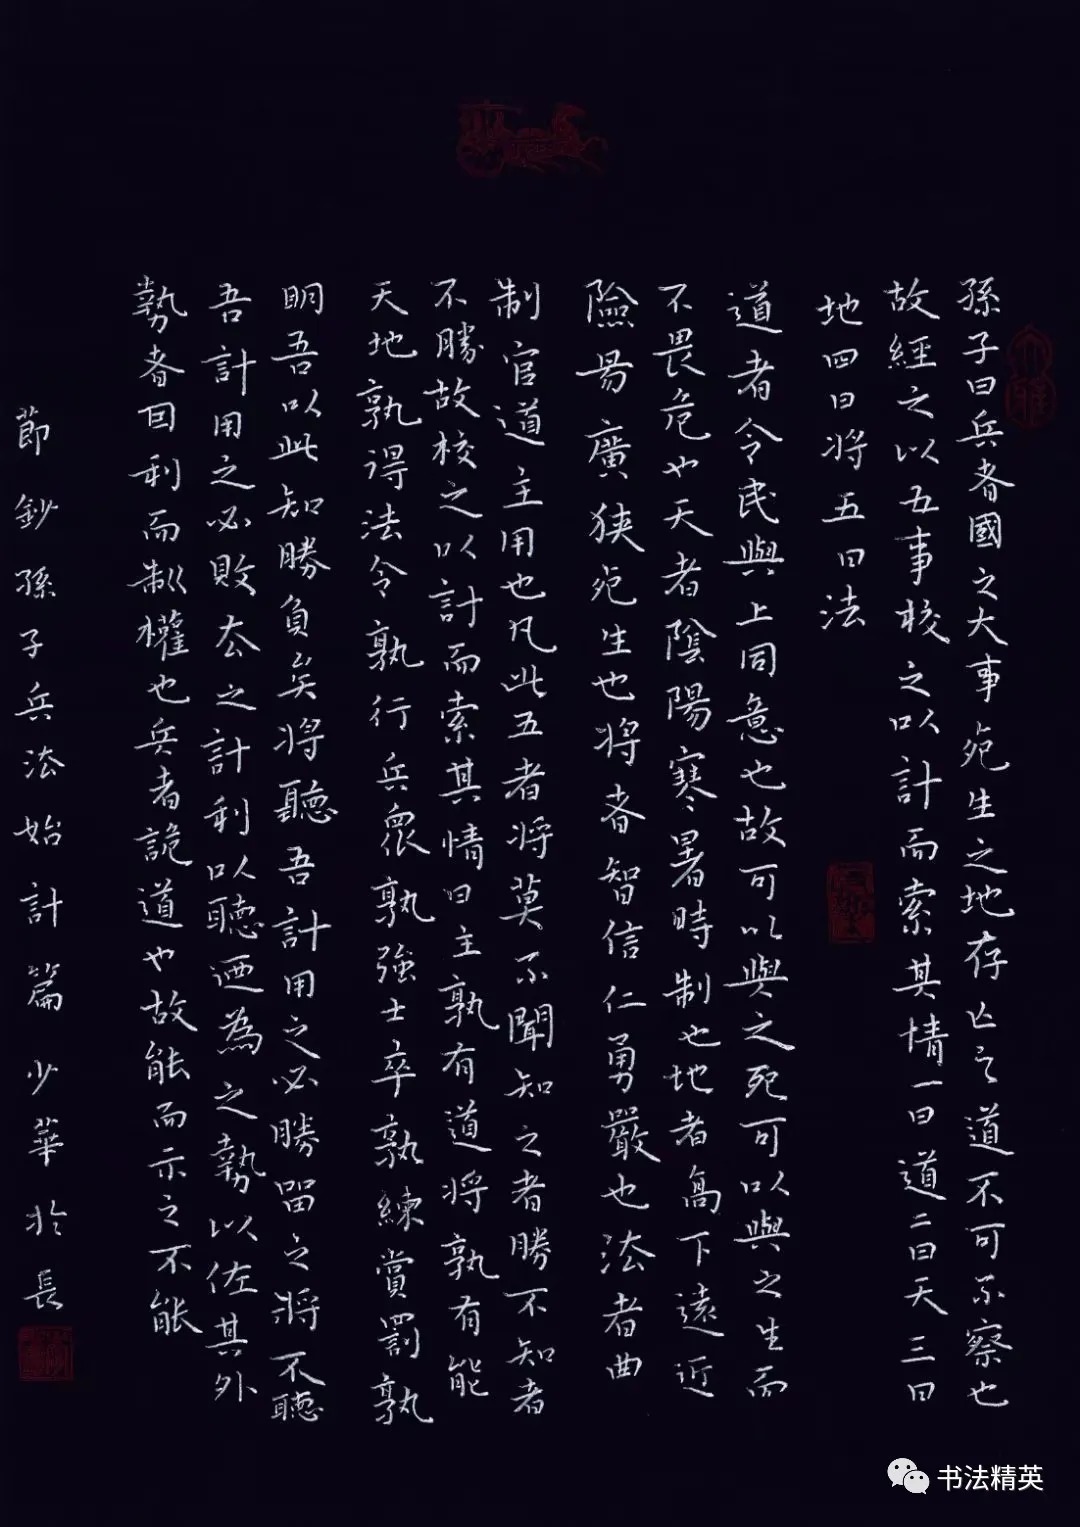 孫子曰兵者國之大事死生之地存亡之道不可不察也
故經之以五事校之以計而索其情一曰道二曰天三曰
地四曰将五曰法
道者令民與上同意也故可以與之死可以與之生而
不畏危也天者陰陽寒暑時制也地者高下遠近
險易廣狭死生也将者智信仁勇嚴也法者曲
制官道主用也凡此五者将莫不聞知之者勝不知者
不勝故校之以計而索其情曰主孰有道将孰有能
天地孰得法令孰行兵衆孰強士卒孰練賞罰孰
明吾以此知勝負矣将聽吾計用之必勝留之将不聽
吾計用之必敗去之計利以聽迺為之勢以佐其外
勢者因利而制權也兵者詭道也故能而示之不能
節鈔孫子兵法始計篇 少華於長
书法精英